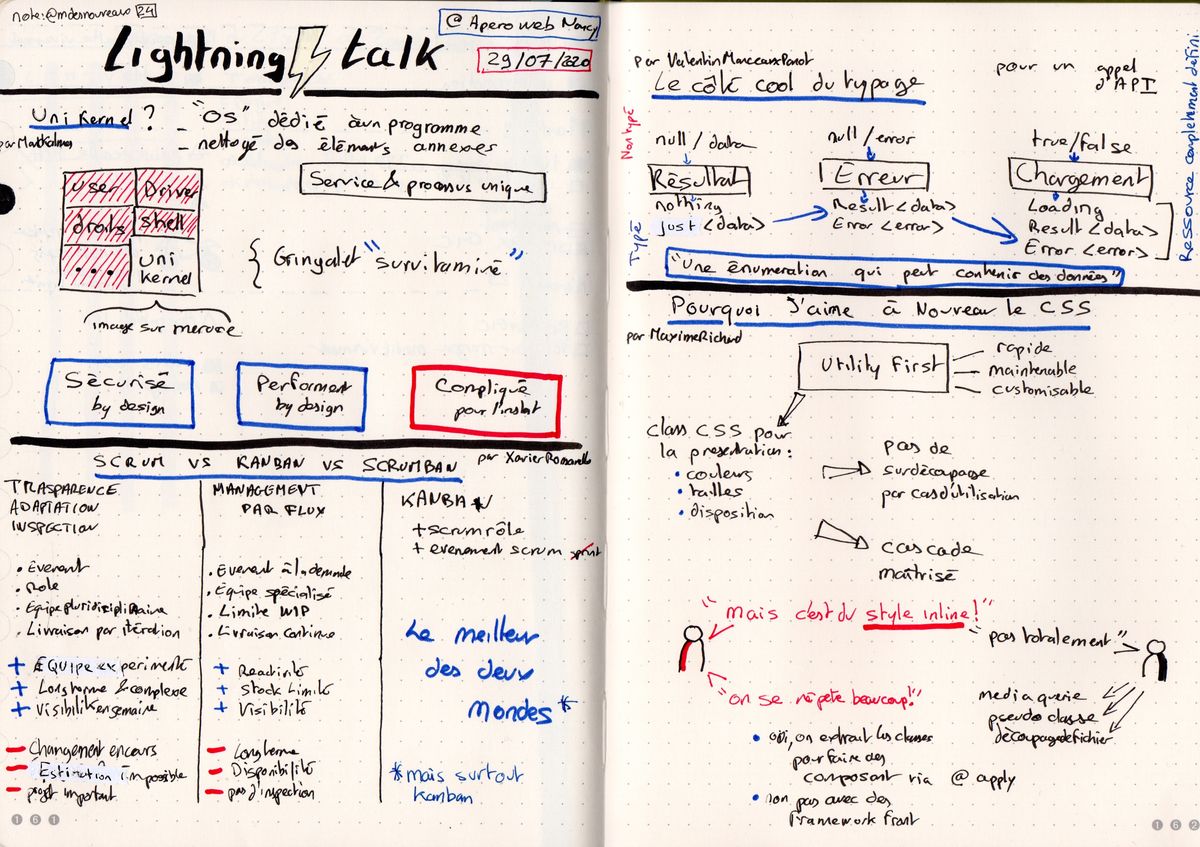 note: @mdesnouveaux 24
@ Apero web Nancy
Lightning talk
29/07/2020
Uni Kernel ?
par MaxKalmes
- "OS" dédié à un programme
- nettoyé des éléments annexes
Service & processus unique
user
Driver
droits
shell
...
uni
kernel
{ Gringalet "survitaminé"
image sur mesure
Sécurisé
by design
Performent
by design
Compliqué
pour l'instat
SCRUM VS KANBAN VS SCRUMBAN
par Xavier Romanello
TRASPARENCE
ADAPTATION
INSPECTION
• Evenent
• Role
• Equipe pluridisciplinaire
• Livraison par itération
+ EQUIPE experimenté
+ Long terme & complexe
+ Visibilité en semaine
- Changement en cours
- Estimation impossible
- projet important
MANAGEMENT
PAR FLUX
• Evenent à la demande
• Equipe spécialisé
• Limite WIP
• Livraison continue
+ Reactivité
+ Stock Limité
+ Visibilité
- Long terme
- Disponibilité
- pas d'inspection
KANBAN
+ scrum rôle
+ evenement scrum sprint
Le meilleur
des deux
mondes *
* mais surtout
kanban
161
par Valentin Marceaux Panot
Le côté cool du typage
pour un appel
d'API
Non typé
Typé
null / data
Résultat
nothing
just <data>
null / error
Erreur
Result <data>
Error <error>
true/false
Chargement
Loading
Result <data>
Error <error>
Ressource complètement défini
"Une énumeration qui peut contenir des données"
Pourquoi J'aime à Nouveau le CSS
par Maxime Richard
Utility First
rapide
maintenable
customisable
class CSS pour
la presentation:
• couleurs
• tailles
• disposition
pas de
surdécoupage
par cas d'utilisation
cascade
maîtrisé
"mais c'est du style inline!"
"pas totalement"
"on se répète beaucoup!"
media querie
pseudo classe
découpage de fichier
• oui, on extrait les classes
pour faire des
composant via @apply
• non pas avec des
Framework Front
162